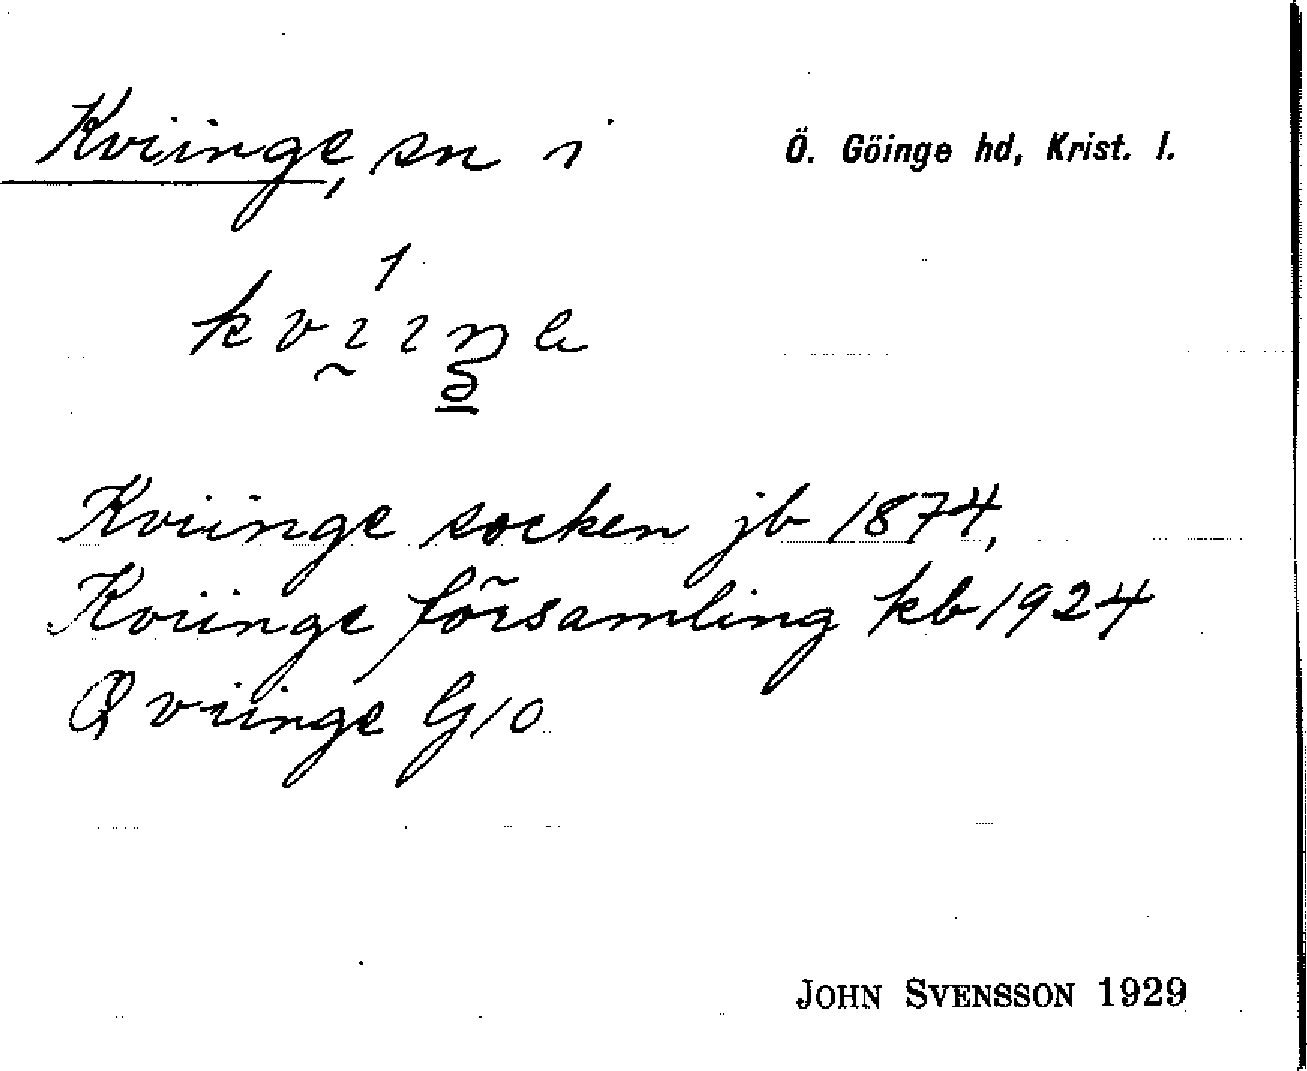 Kviinge, sn i Ö. Göinge hd, Krist. l.
Kviinge socken jb 1874,
Kviinge församling kb 1924
Qviinge G10
JOHN SVENSSON 1929